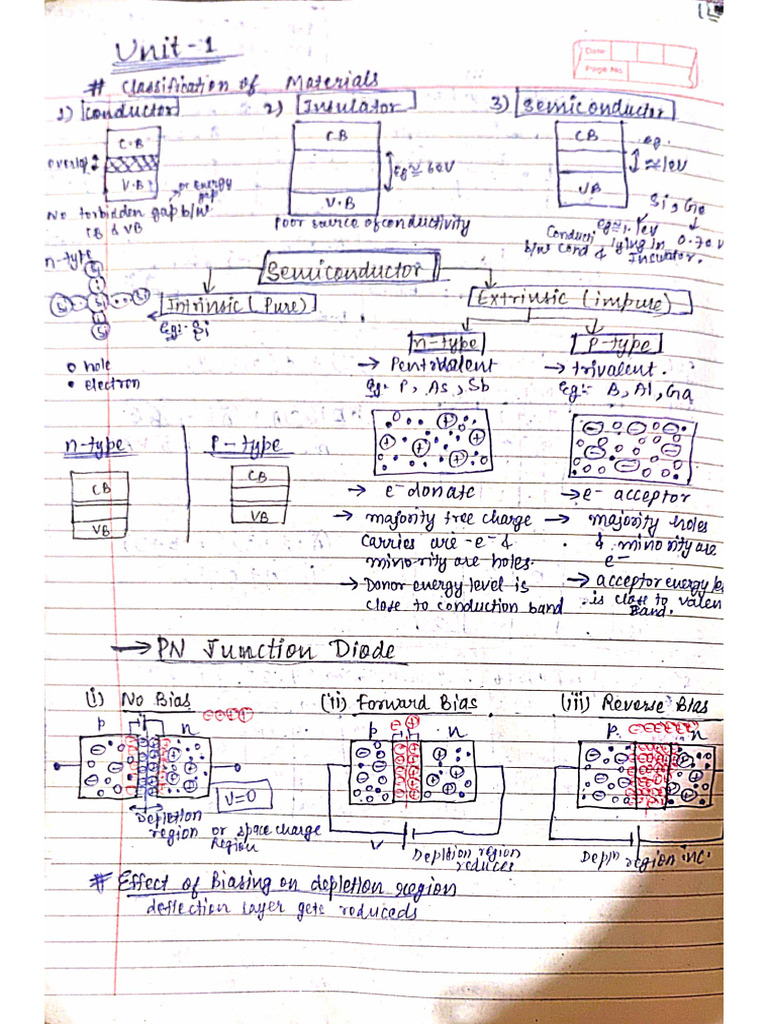 Unit-1
Date
Page No
# Classification of Materials
1) Conductor 2) Insulator 3) Semiconductor
C.B CB CB eg.
overlap eg ≃ 6eV ≃ 1eV
V.B V.B VB
or energy gap
No forbidden gap b/w CB & VB
Poor source of conductivity
Si, Ge
eg ≃ 1.1ev 0.7eV
Conducti lying in
b/w Cond & Insulator.
n-type
Semiconductor
Intrinsic (Pure) Extrinsic (impure)
eg:- Si
n-type P-type
o hole
• electron
→ Pentavalent → trivalent.
Eg: P, As, Sb Eg:- B, Al, Ga
n-type P-type
CB CB
VB VB
→ e- donate → e- acceptor
→ majority free charge → majority holes
carries are -e- & & minority are
minority are holes. e-
→ Donor energy level is → acceptor energy le
close to conduction band is close to valen
Band.
→ PN Junction Diode
(i) No Bias (ii) Forward Bias (iii) Reverse Bias
P n P n P n
V=0
Depletion
region or space charge
Region
V
Depletion region
reduces
Depln region inc.
# Effect of Biasing on depletion region
deflection layer gets reduceds